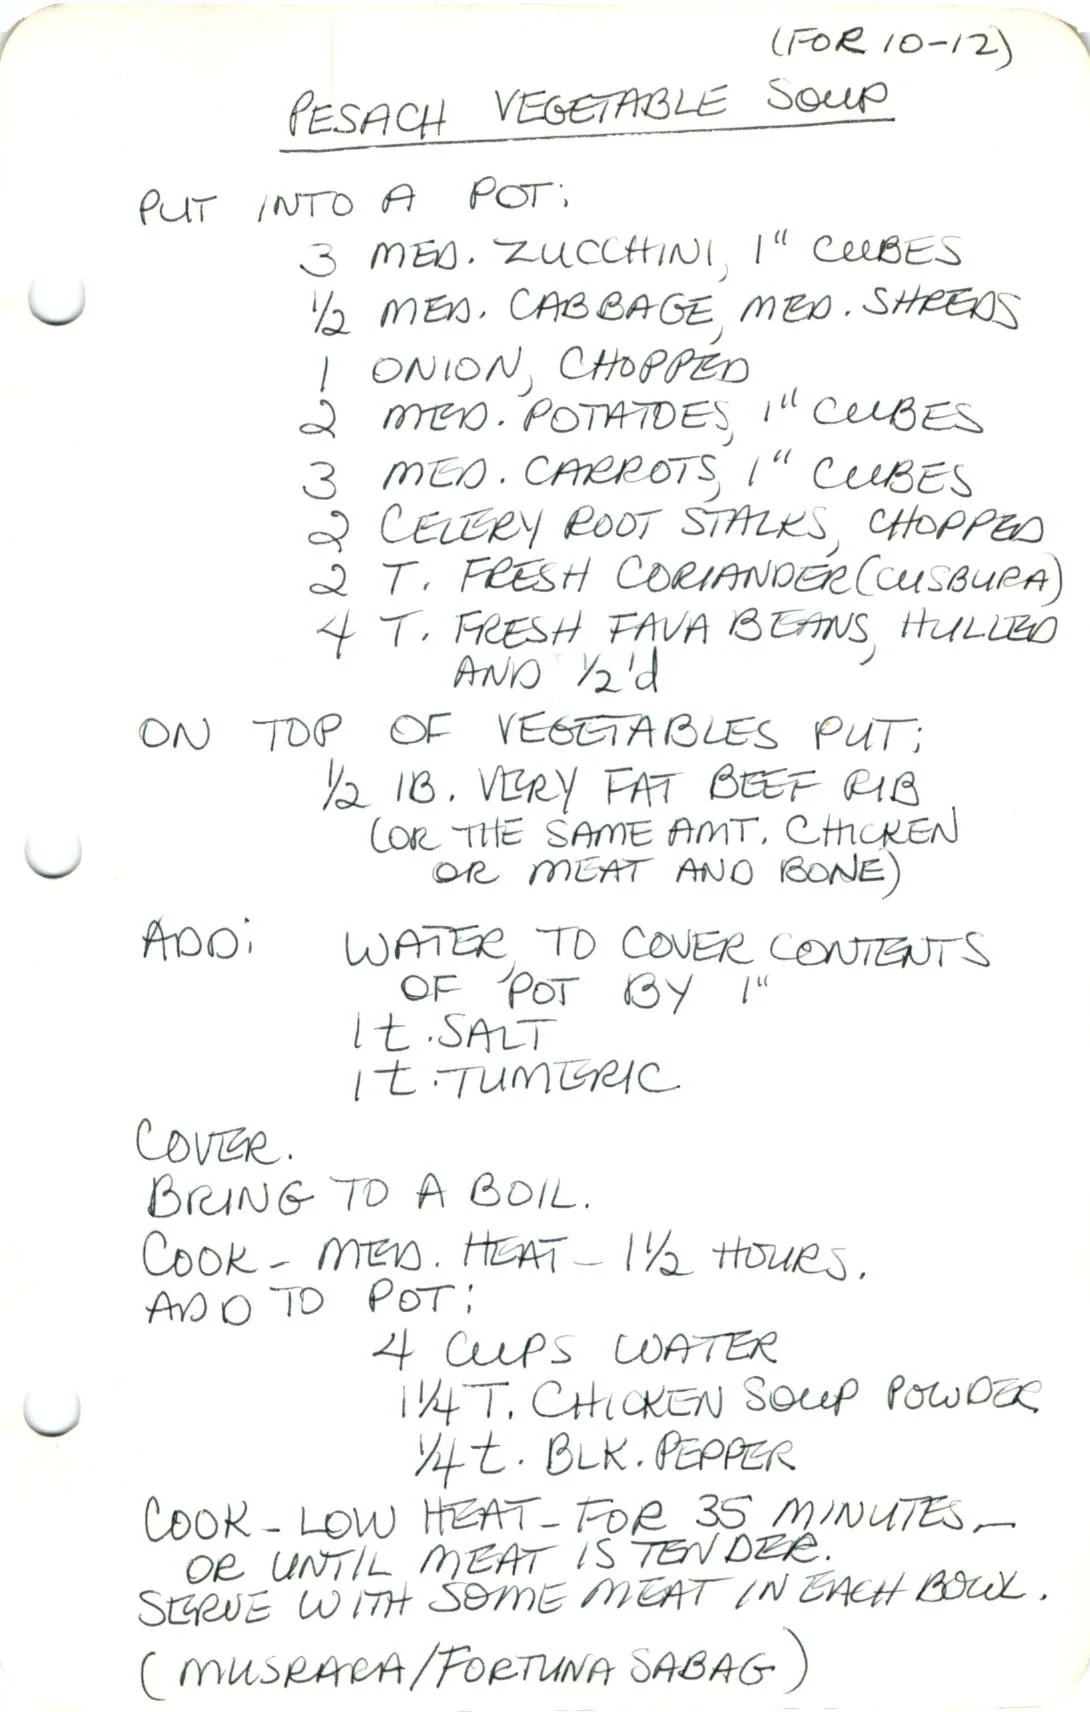 (FOR 10-12)
PESACH VEGETABLE SOUP
PUT INTO A POT:
3 MED. ZUCCHINI, 1" CUBES
1/2 MED. CABBAGE, MED. SHREDS
1 ONION, CHOPPED
2 MED. POTATOES, 1" CUBES
3 MED. CARROTS, 1" CUBES
2 CELERY ROOT STALKS, CHOPPED
2 T. FRESH CORIANDER (CUSBURA)
4 T. FRESH FAVA BEANS, HULLED
AND 1/2'd
ON TOP OF VEGETABLES PUT:
1/2 lB. VERY FAT BEEF RIB
(OR THE SAME AMT. CHICKEN
OR MEAT AND BONE)
ADD: WATER, TO COVER CONTENTS
OF POT BY 1"
1 t. SALT
1 t. TUMERIC
COVER.
BRING TO A BOIL.
COOK - MED. HEAT - 1 1/2 HOURS.
ADD TO POT:
4 CUPS WATER
1 1/4 T. CHICKEN SOUP POWDER
1/4 t. BLK. PEPPER
COOK - LOW HEAT - FOR 35 MINUTES -
OR UNTIL MEAT IS TENDER.
SERVE WITH SOME MEAT IN EACH BOWL.
(MUSRARA/FORTUNA SABAG)